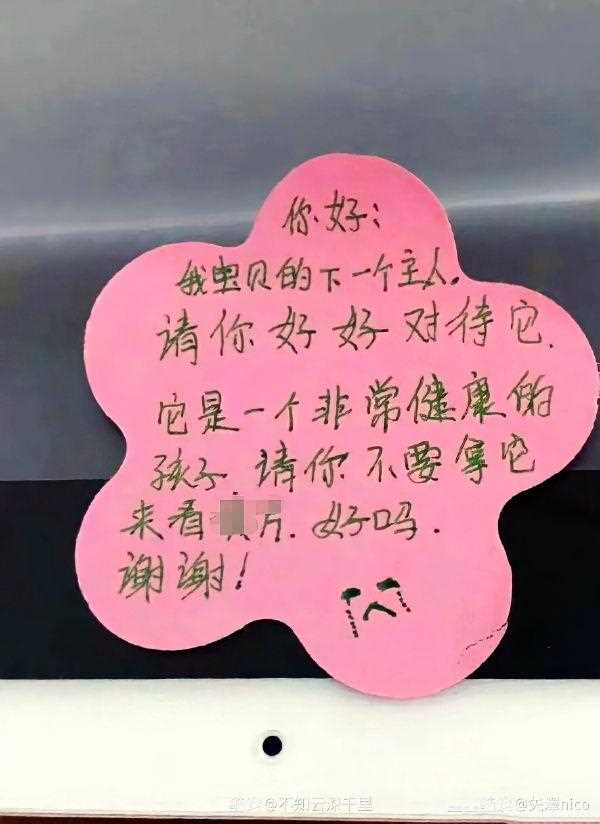 你好:
我宝贝的下一个主人.
请你好好对待它.
它是一个非常健康的
孩子.请你不要拿它
来看 片.好吗.
谢谢!
@不知云深千里
nico